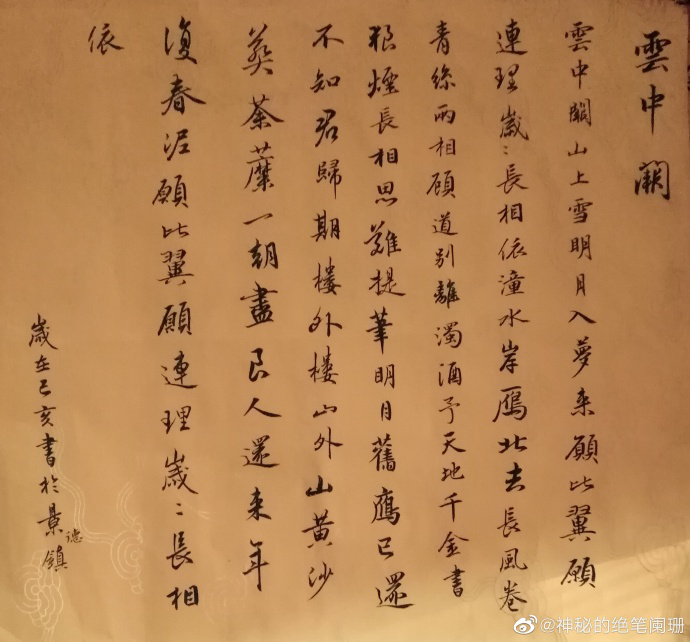 雲中闕
雲中闕山上雪明月入夢来願比翼願
連理歲〻長相依潼水岸鴈北去長風卷
青絲兩相顧道別離濁酒予天地千金書
狼煙長相思難提筆明月舊鷹已還
不知君歸期樓外樓山外山黃沙
葬荼蘼一朝盡良人還来年
復春泥願比翼願連理歲〻長相
依
歲在己亥書於景德鎮
@神秘的绝笔阑珊